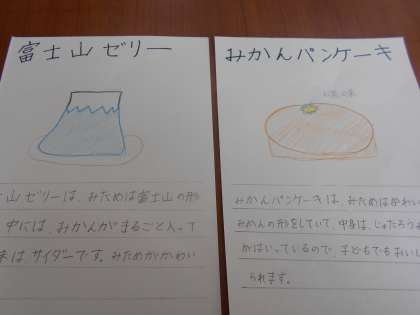 富士山ゼリー
士山ゼリーは、みためは富士山の形
中には、みかんがまるごと入って
味はサイダーです。みためがかわい
みかんパンケーキ
みかんパンケーキは、みためはかわい
みかんの形をしていて、中身は、じゅたろうみ
かはいっているので、子どもでもおいし
られます。